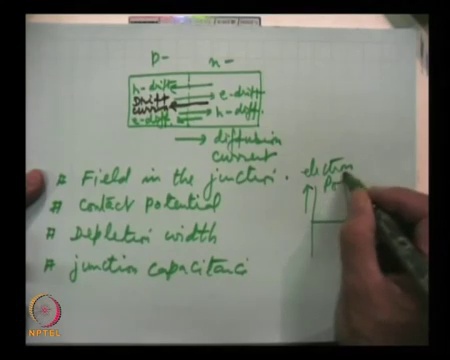 p- n-
h-drift
e-drift
Drift
current
h-diff.
e-diff.
diffusion
current
# Field in the junction.
# contact potential
# Depletion width
# junction capacitanci
electron
po
NPTEL